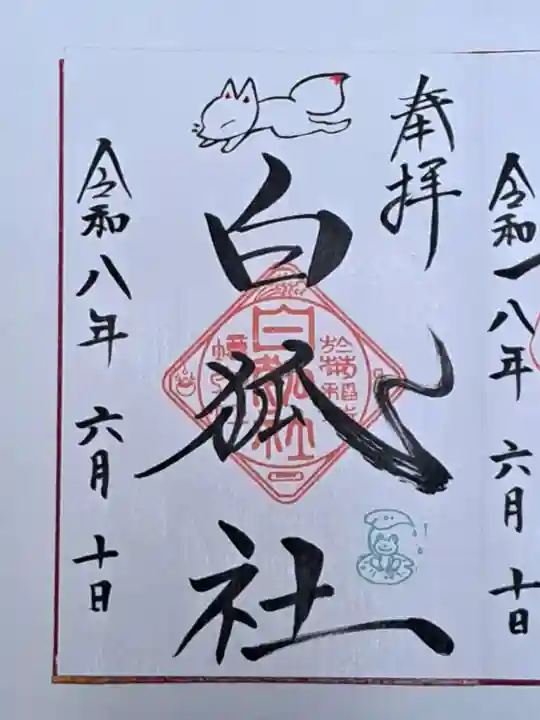 令和八年 六月 十日
奉拝
白狐社
白狐社
令和八年 六月 十日